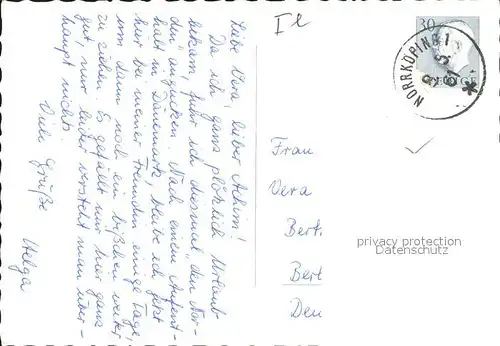 Liebe Vera, lieber Achim!
Da ich ganz plötzlich Urlaub
bekam, fuhr ich diesmal "den Nor-
den" angucken. Nach einem Aufent-
halt in Dänemark, bleibe ich jetzt
hier bei meiner Freundin einige Tage,
um dann noch ein bißchen weiter
zu ziehen. Es gefällt mir hier ganz
gut, nur leider versteht man über-
haupt nichts.
Viele Grüße
Helga
30
SVERIGE
NORRKÖPING 1
Frau
Vera
Bert
Bert
Den
privacy protection
Datenschutz